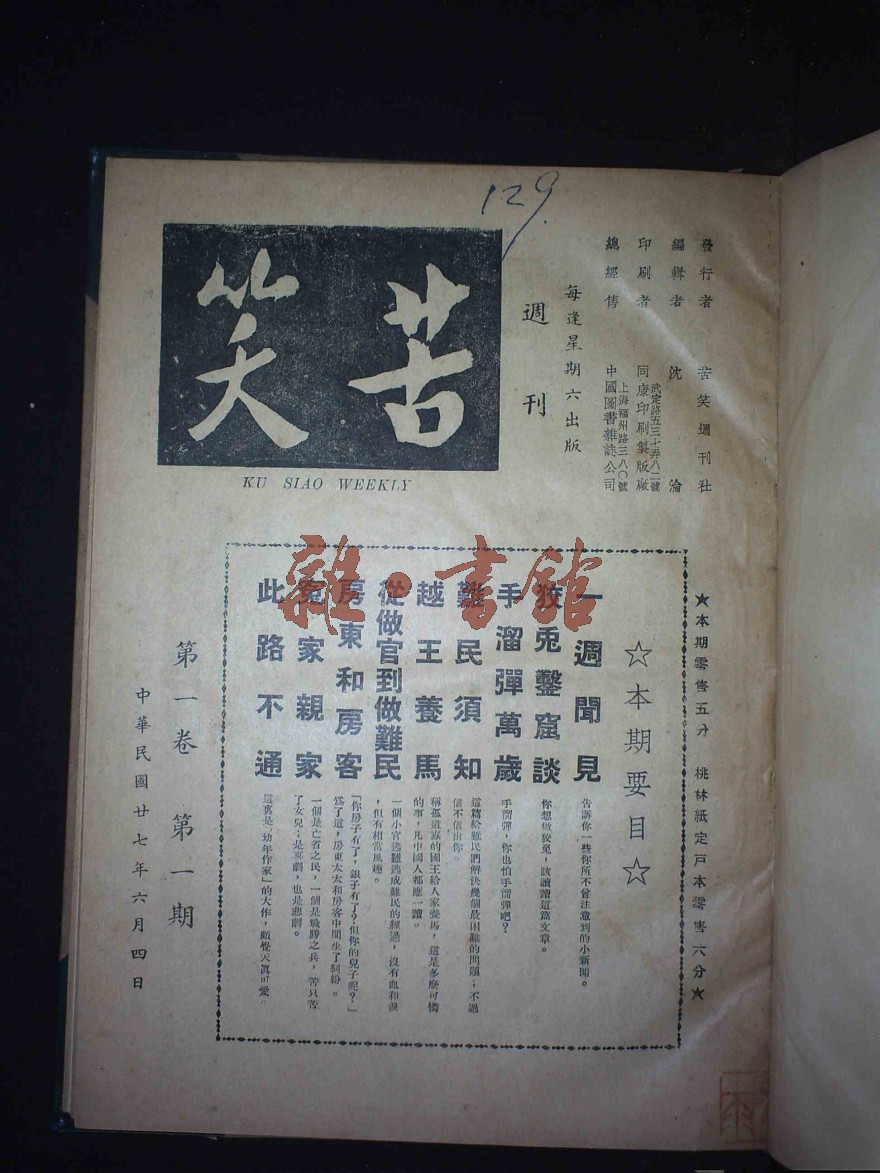 129
發行者 苦笑週刊社
編輯者 沈淪
印刷者 同康印刷製版廠
武定路五三七弄八二號
總經售 中國圖書雜誌公司
上海福州路三八〇號
每逢星期六出版
週刊
苦笑
KU SIAO WEEKLY
★本期零售五分 桃林紙定戶本零售六分★
☆本期要目☆
一週聞見
告訴你一些你所不曾注意到的小新聞。
狡兎鑿窟談
你想做狡兎，該讀讀這篇文章。
手溜彈萬歲
手溜彈，你也怕手溜彈吧？
難民須知
這篇給難民們解決幾個最困難的問題；不過
信不信由你。
越王養馬
稱孤道寡的國王給人家養馬，這是多麽可憐
的事，凡中國人都應一讀。
從做官到做難民
一個小官逃難逃成難民的經過，沒有血和淚
，但有相當風趣。
房東和房客
「你房子有了，銀子有了？但你的兒子呢？」
爲了這，房東太太和房客中間生了糾紛。
冤家親家
一個是亡省之民，一個是戰勝之兵，苦只苦
了女兒；是喜劇，也是悲劇。
此路不通
這裏是「幼年作家」的大作，頗覺天眞可愛。
第一卷 第一期
中華民國廿七年六月四日
雜·書館